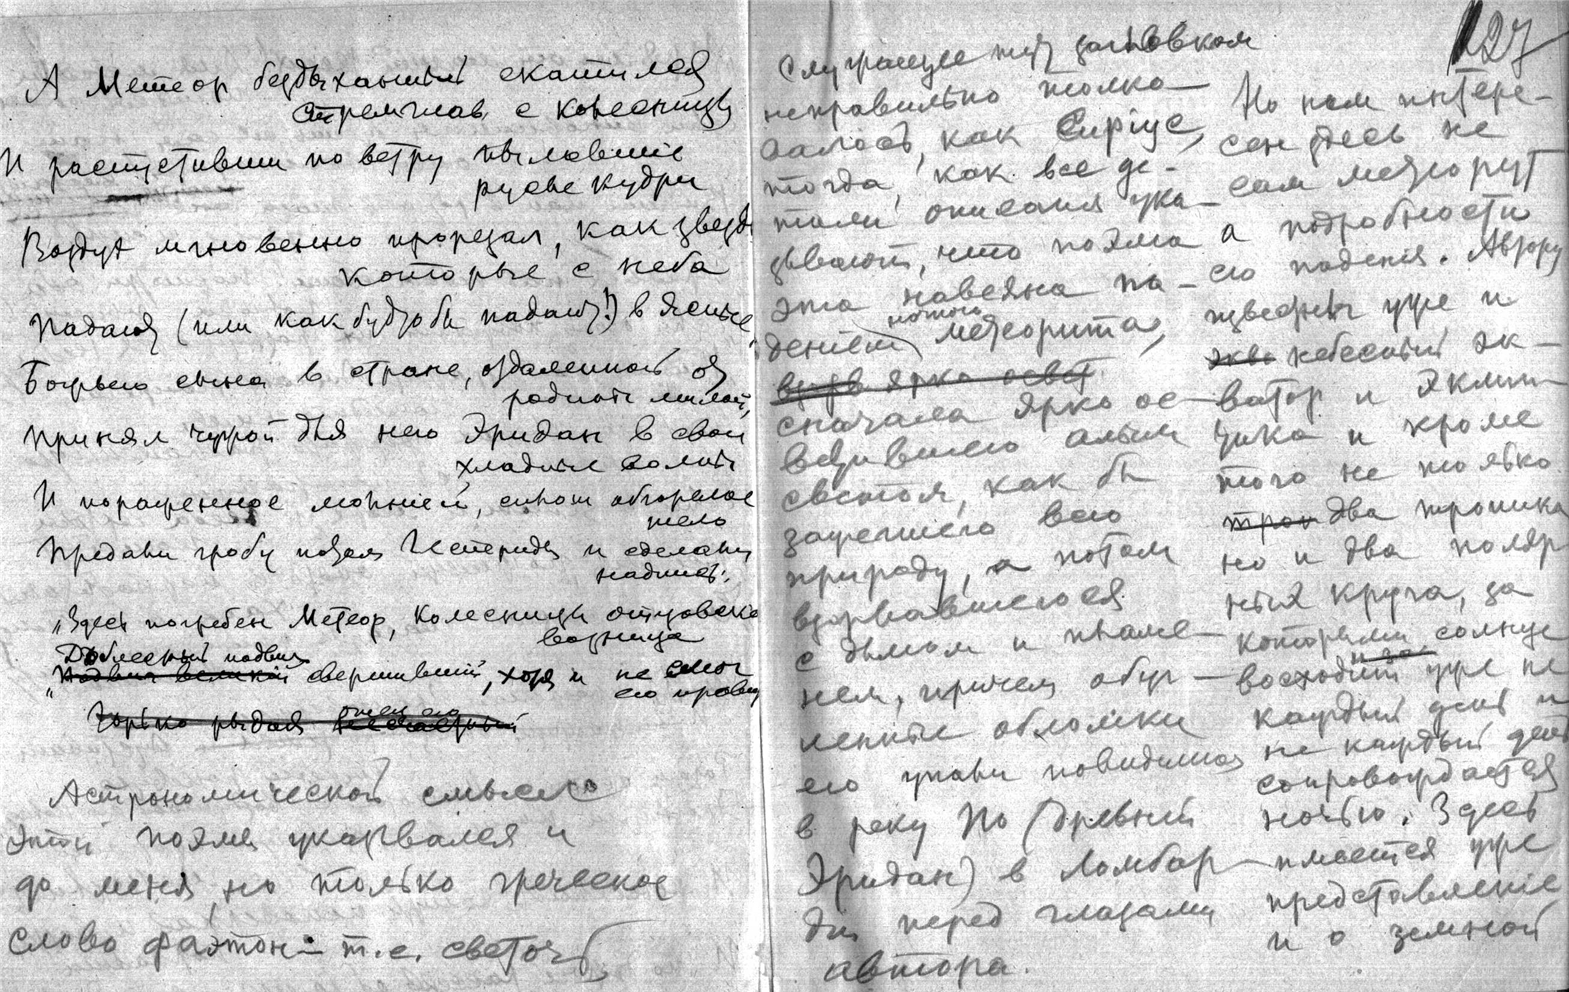 А Метеор бездыханный скатился
стремглав с колесницы
И распустивши по ветру пылавшие
русые кудри
Воздух мгновенно прорезал, как звезды
которые с неба
Падают (или как будто бы падают!) в ясные
Богрьего сына в стране, отдаленной от
родины милой,
Принял чуждой для него Эридан в свои
хладные волны
И пораженное молнией, сплошь обгорелое
тело
Предали гробу потом Геспериды и сделали
надпись:
"Здесь погребен Метеор, колесницы отцовской
возница
Доблестный подвиг
"Подвиг великий свершивший, хотя и не смог
его править
отец его
Горько рыдая несчастный
Астрономический смысл
этой поэмы указывался и
до меня, но только греческое
слово Фаэтон — т.е. светоч
127
служащее ему заголовком
неправильно толко-
валось, как Сириус,
тогда, как все де-
тали описания ука-
зывают, что поэма
эта навеяна па-
дением метеорита,
ярко освет
сначала ярко ос-
ветившего алым
светом, как бы
зажегшего всю
природу, а потом
взорвавшегося
с дымом и пламе-
нем, причем обуг-
ленные обломки
его упали повидимому
в реку По (древний
Эридан) в Ломбар-
дии перед глазами
автора.
Но нам интере-
сен здесь не
сам метеорит
а подробности
его падения. Автору
известны уже и
экв небесный эк-
ватор и эклип-
тика и кроме
того не только
троп два тропика
но и два поляр
ных круга, за
которыми солнце
и за
восходит уже не
каждый день и
не каждый день
сопровождается
ночью. Здесь
имеется уже
представление
и о земной